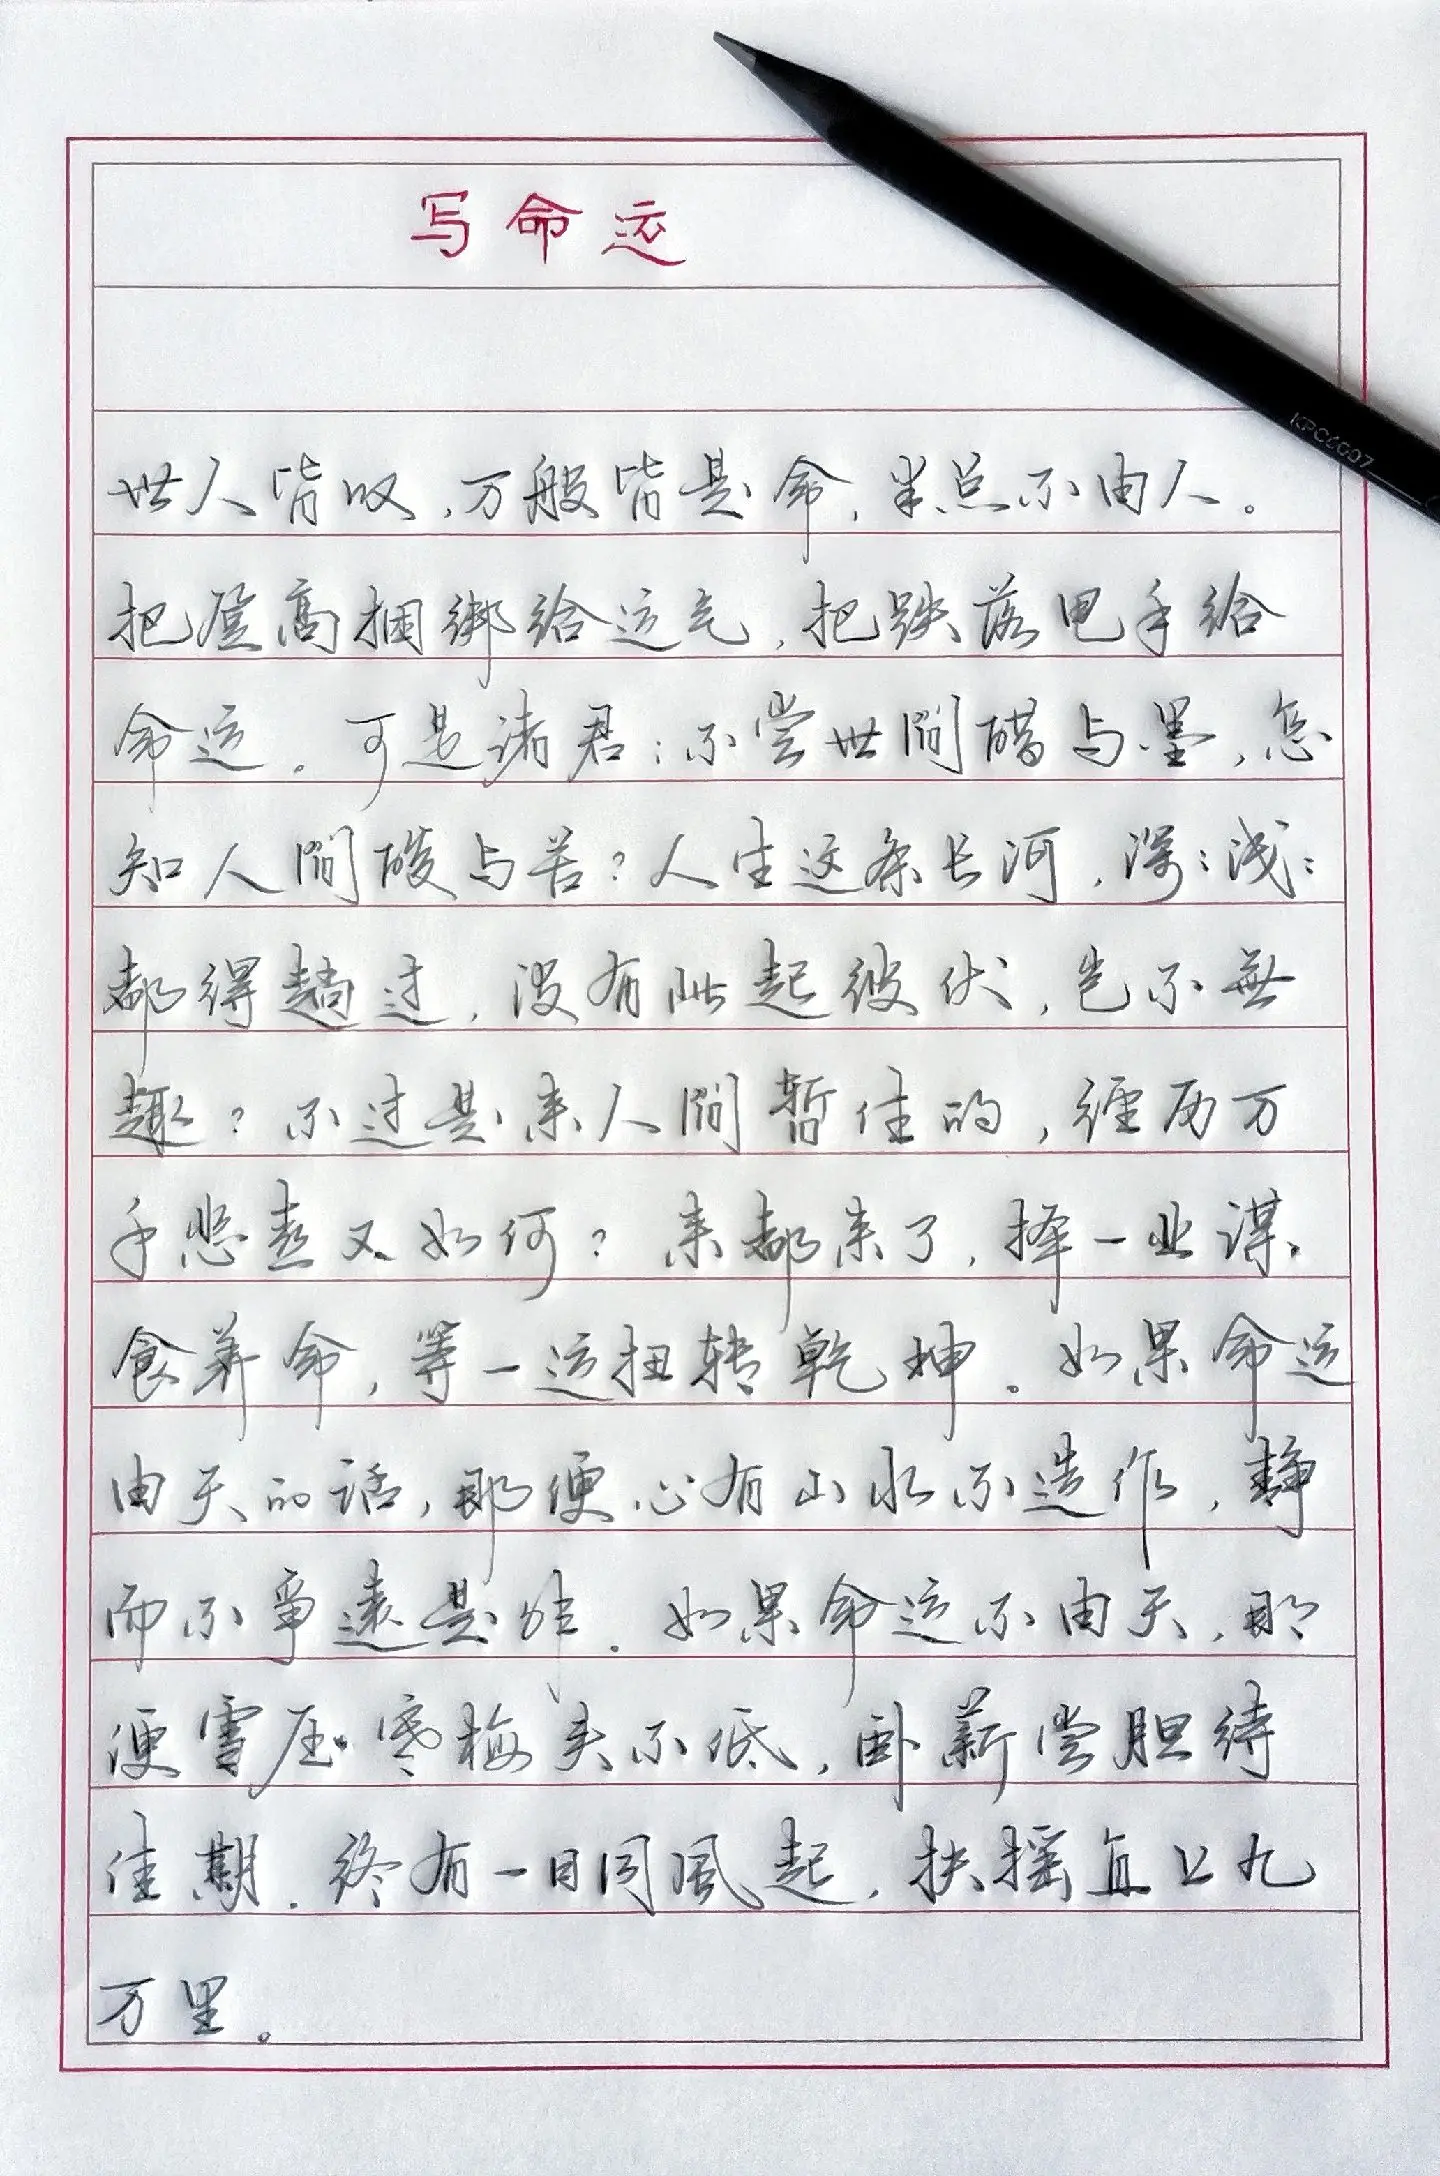 写命运
KPC6007
世人皆叹，万般皆是命，半点不由人。
把登高捆绑给运气，把跌落甩手给
命运。可是诸君：不尝世间醋与墨，怎
知人间酸与苦？人生这条长河，深：浅：
都得趟过，没有此起彼伏，岂不無
趣？不过是来人间暂住的，经历万
千悲喜又如何？来都来了，择一业谋
食养命，等一运扭转乾坤。如果命运
由天的话，那便心有山水不造作，静
而不争远是非。如果命运不由天，那
便雪压寒梅头不低，卧薪尝胆待
佳期。终有一日同風起，扶摇直上九
万里。